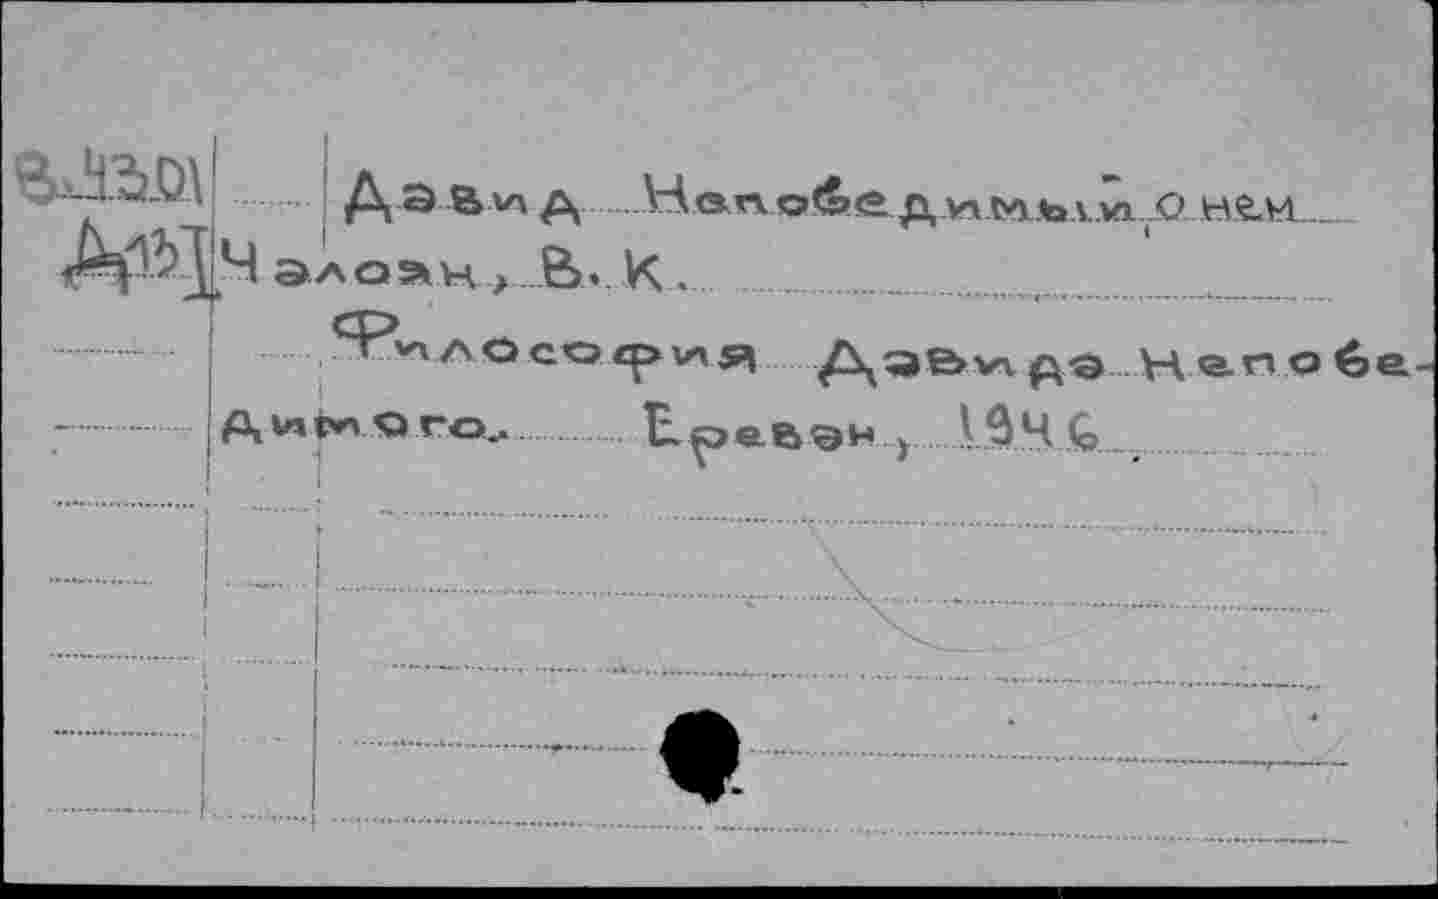 Давид Непобедимый о нем
Чалоян, В. К.
Философия Давида Непобе-
димого. Ереван, 1946